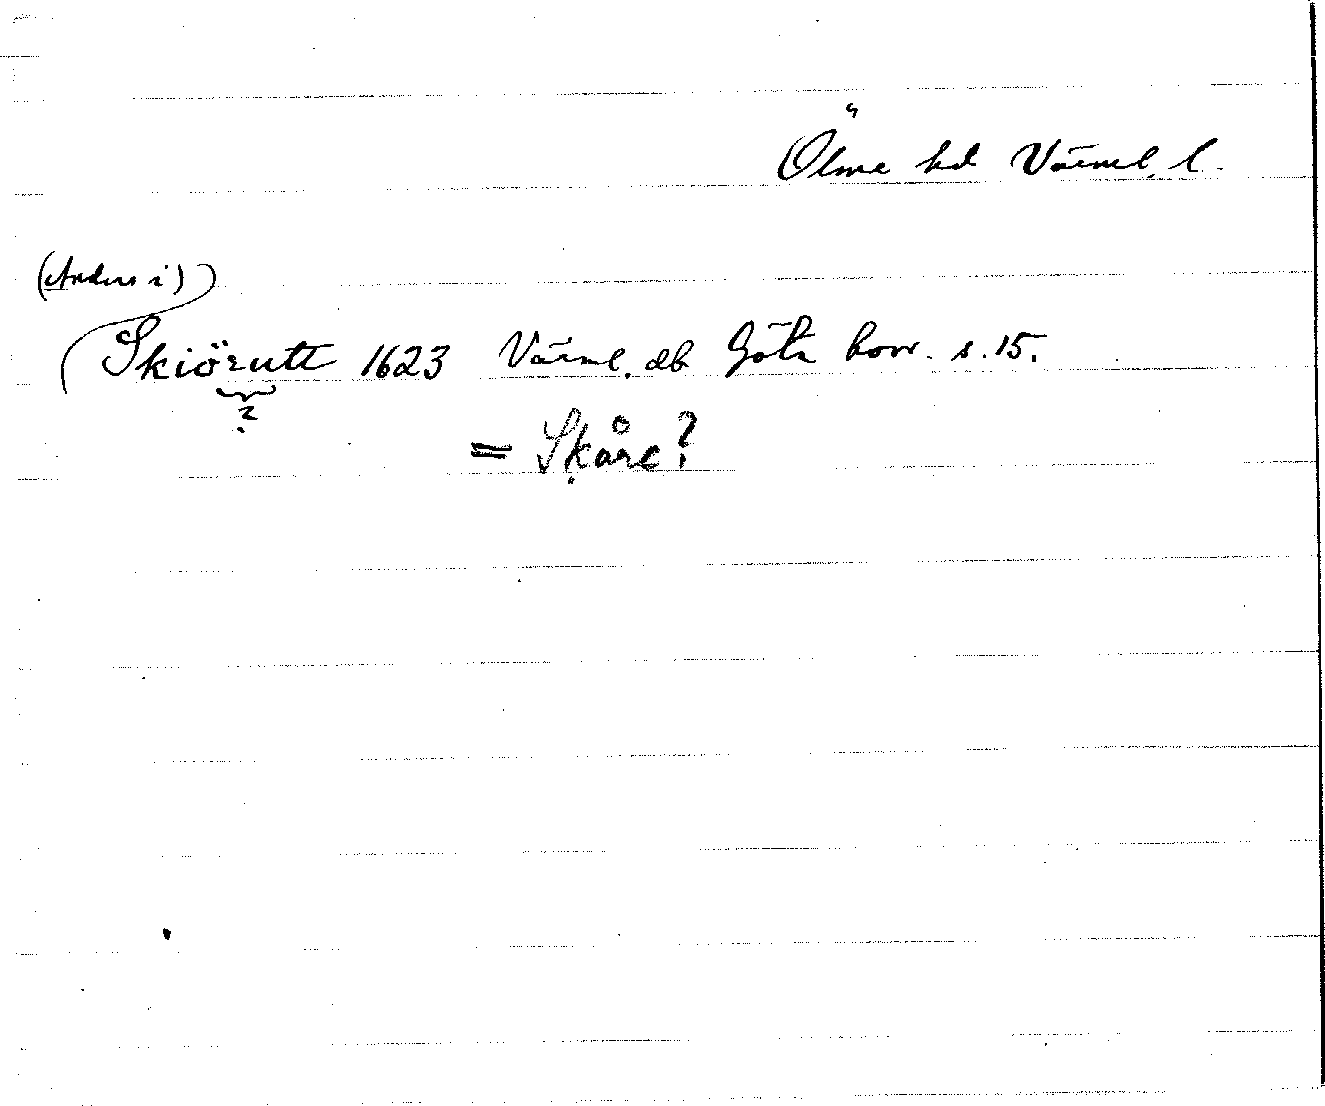 Ölme hd Värml. l.
(Anders i)
Skiörutt 1623 Värml. db Göta hovr. s. 15.
?
= Skåre?